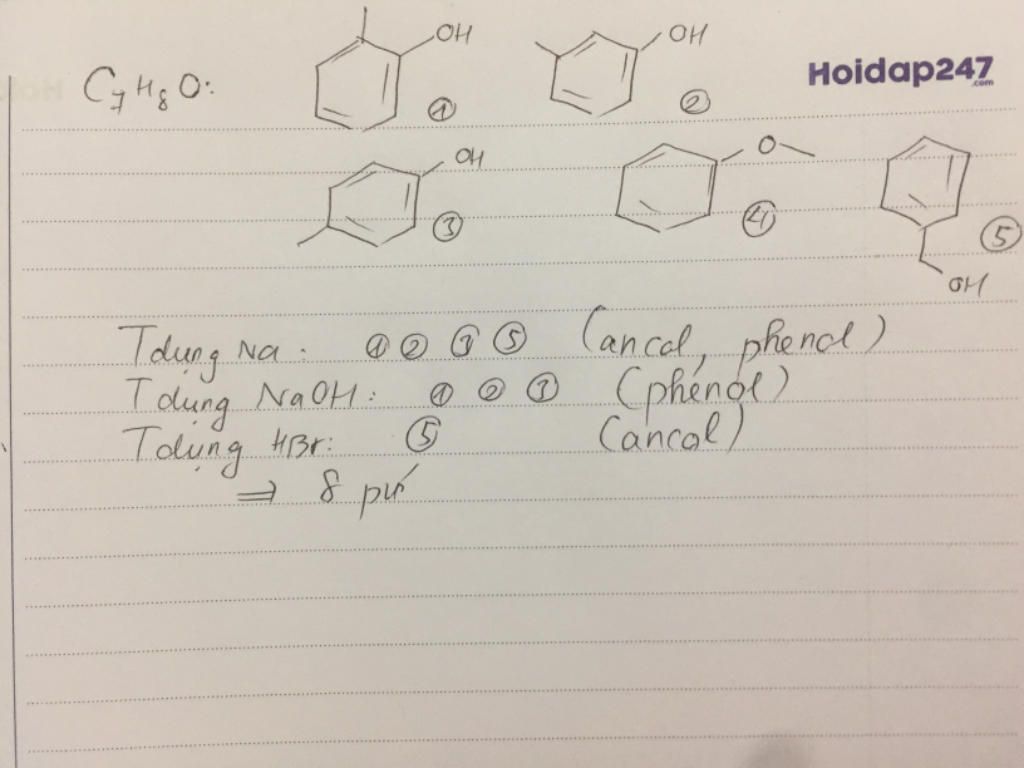 OH OH
C7H8O: Hoidap247
.com
① ②
OH O
③ ④ ⑤
OH
Tdụng Na: ① ② ③ ⑤ (ancol, phenol)
Tdụng NaOH: ① ② ③ (phenol)
Tdụng HBr: ⑤ (ancol)
⇒ 8 pứ